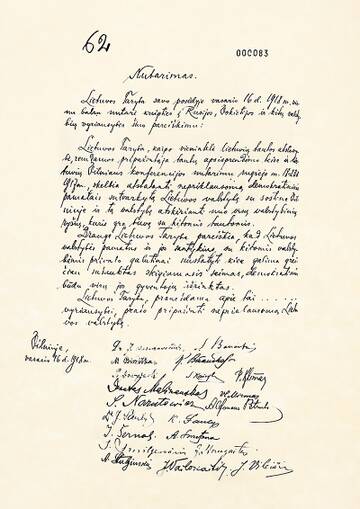 62
000083
Nutarimas.
Lietuvos Taryba savo posėdyje vasario 16 d. 1918 m. vienu
balsu nutarė kreiptis į Rusijos, Vokietijos ir kitų valstybių
vyriausybes šiuo pareiškimu:
Lietuvos Taryba, kaipo vienintelė lietuvių tautos atstovybė,
remdamos pripažintąja tautų apsisprendimo teise ir lietuvių
Vilniaus konferencijos nutarimu rugsėjo m. 18–23 d.
1917 m., skelbia atstatanti nepriklausomą demokratiniais
pamatais sutvarkytą Lietuvos valstybę su sostine Vilniuje
ir tą valstybę atskirianti nuo visų valstybinių
ryšių, kurie yra buvę su kitomis tautomis.
Drauge Lietuvos Taryba pareiškia, kad Lietuvos
valstybės pamatus ir jos santykius su kitomis valstybėmis
privalo galutinai nustatyti kiek galima greičiau
sušauktas steigiamasis seimas, demokratiniu
būdu visų jos gyventojų išrinktas.
Lietuvos Taryba, pranešdama apie tai . . . . . .
vyriausybei, prašo pripažinti nepriklausomą Lietuvos
valstybę.
Vilniuje,
vasario 16 d. 1918 m.
Dr. J. Basanavičius S. Banaitis
M. Biržiška K. Bizauskas
P. Klimas
Donatas Malinauskas Vl. Mironas
S. Narutowicz
K. Šaulys
J. Šernas A. Smetona
J. Smilgevičius
J. Vailokaitis J. Vileišis